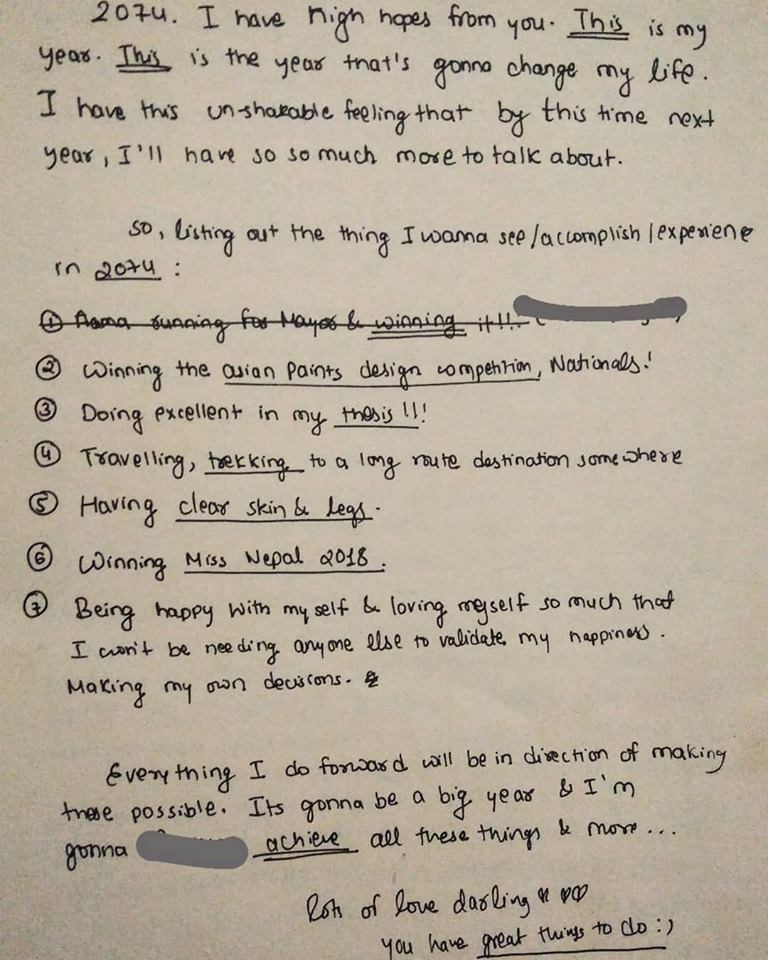 2074. I have high hopes from you. This is my
year. This is the year that's gonna change my life.
I have this un-shakable feeling that by this time next
year, I'll have so so much more to talk about.
So, listing out the thing I wanna see/accomplish/experiene
in 2074 :
① Aama running for Mayor & winning it!!.
② Winning the asian paints design competition, Nationals!
③ Doing excellent in my thesis!!!
④ Travelling, trekking to a long route destination somewhere
⑤ Having clear skin & legs.
⑥ Winning Miss Nepal 2018.
⑦ Being happy with myself & loving myself so much that
I won't be needing anyone else to validate my happiness.
Making my own decisions.
Everything I do forward will be in direction of making
these possible. Its gonna be a big year & I'm
gonna achieve all these things & more...
Lots of love darling ♥ ♥♥
you have great things to do :)